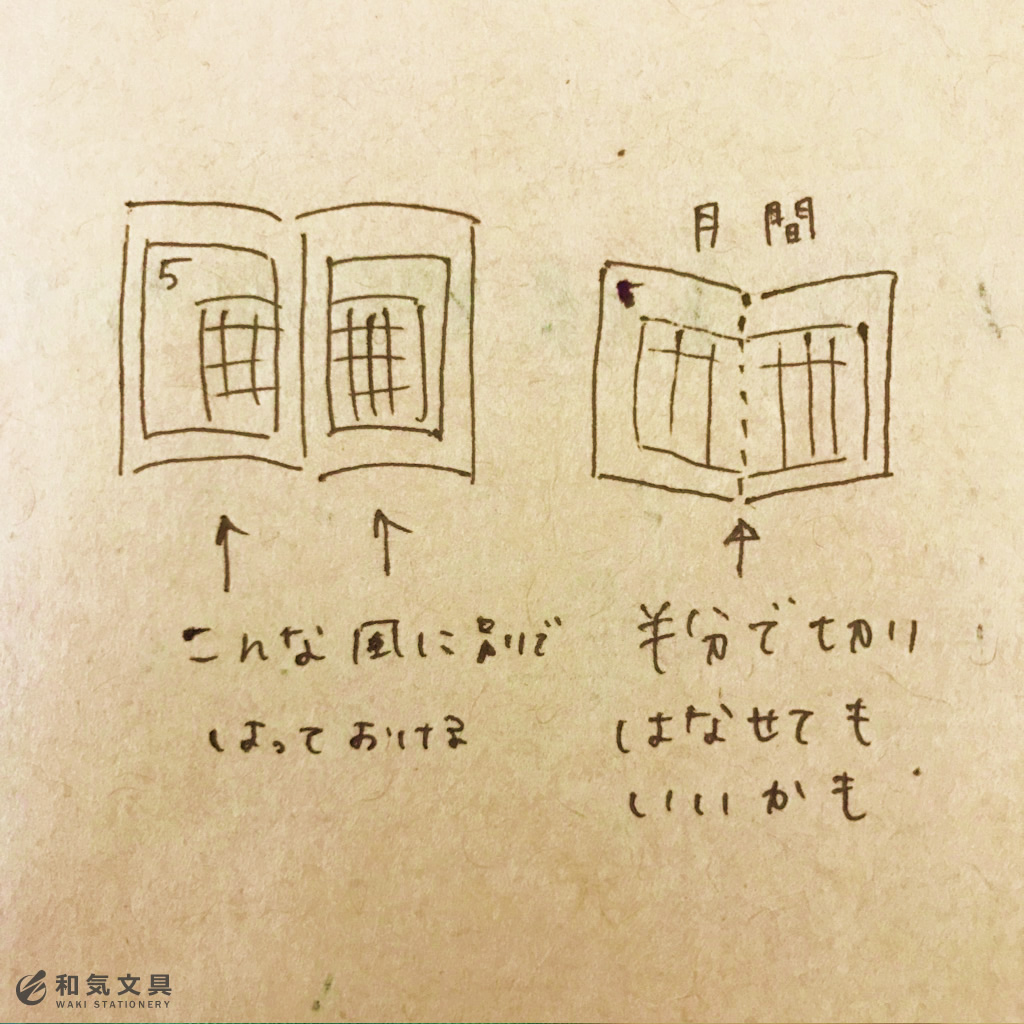 5
こんな風に別で
はっておける
月間
半分で切り
はなせても
いいかも
和気文具
WAKI STATIONERY